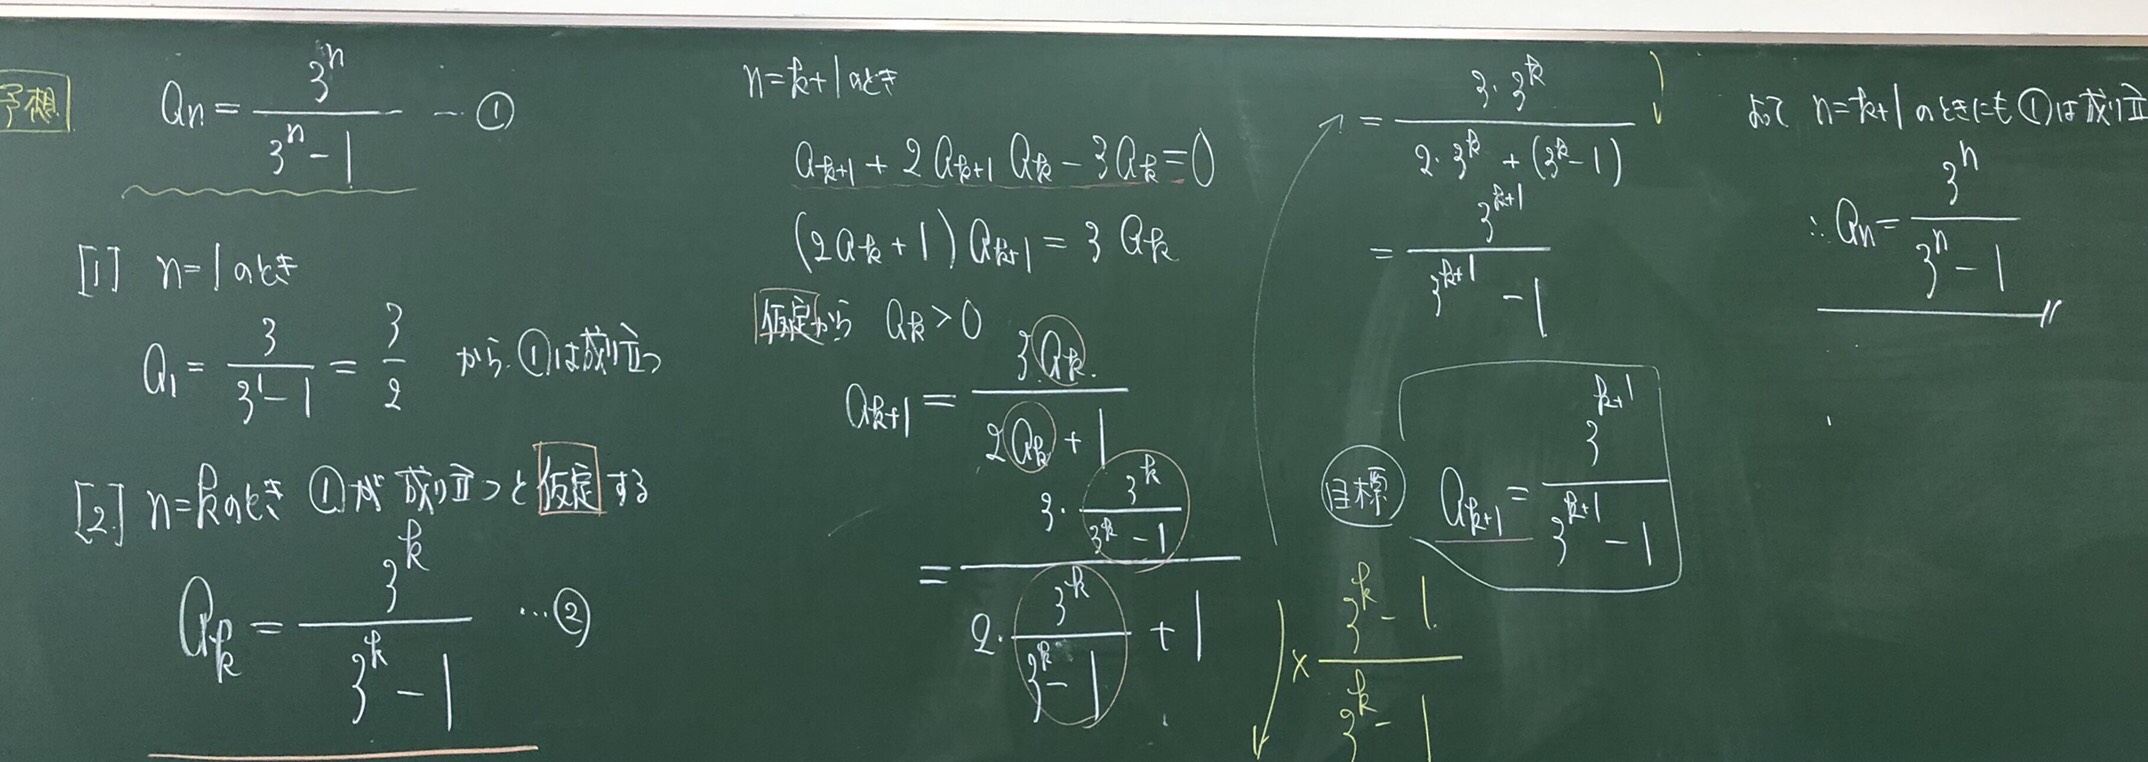 予想
an = 3^n / (3^n - 1) … ①
[1] n=1のとき
a1 = 3 / (3^1 - 1) = 3/2 から ①は成り立つ
[2] n=kのとき ①が成り立つと仮定する
ak = 3^k / (3^k - 1) … ②
n=k+1のとき
ak+1 + 2ak+1 ak - 3ak = 0
(2ak + 1) ak+1 = 3ak
仮定から ak > 0
ak+1 = 3ak / (2ak + 1)
= (3・3^k / (3^k - 1)) / (2・3^k / (3^k - 1) + 1)
× (3^k - 1) / (3^k - 1)
= 3・3^k / (2・3^k + (3^k - 1))
= 3^(k+1) / (3^(k+1) - 1)
目標 ak+1 = 3^(k+1) / (3^(k+1) - 1)
よって n=k+1のときにも①は成り立
∴ an = 3^n / (3^n - 1)